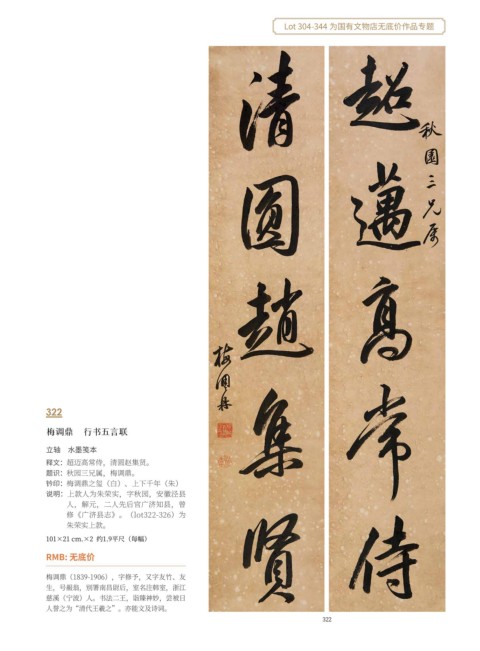 Lot 304-344 为国有文物店无底价作品专题
超邁高常侍
秋園三兄属
清圆趙集賢
梅調鼎
322
梅调鼎 行书五言联
立轴 水墨笺本
释文：超迈高常侍，清圆赵集贤。
题识：秋园三兄属，梅调鼎。
钤印：梅调鼎之玺（白）、上下千年（朱）
说明：上款人为朱荣实，字秋园，安徽泾县
人，解元，二人先后官广济知县，曾
修《广济县志》。（lot322-326）为
朱荣实上款。
101×21 cm.×2 约1.9平尺（每幅）
RMB: 无底价
梅调鼎（1839-1906），字修予，又字友竹、友
生，号赧翁，别署南昌尉后，室名注韩室，浙江
慈溪（宁波）人。书法二王，诣臻神妙，尝被日
人誉之为“清代王羲之”。亦能文及诗词。
322